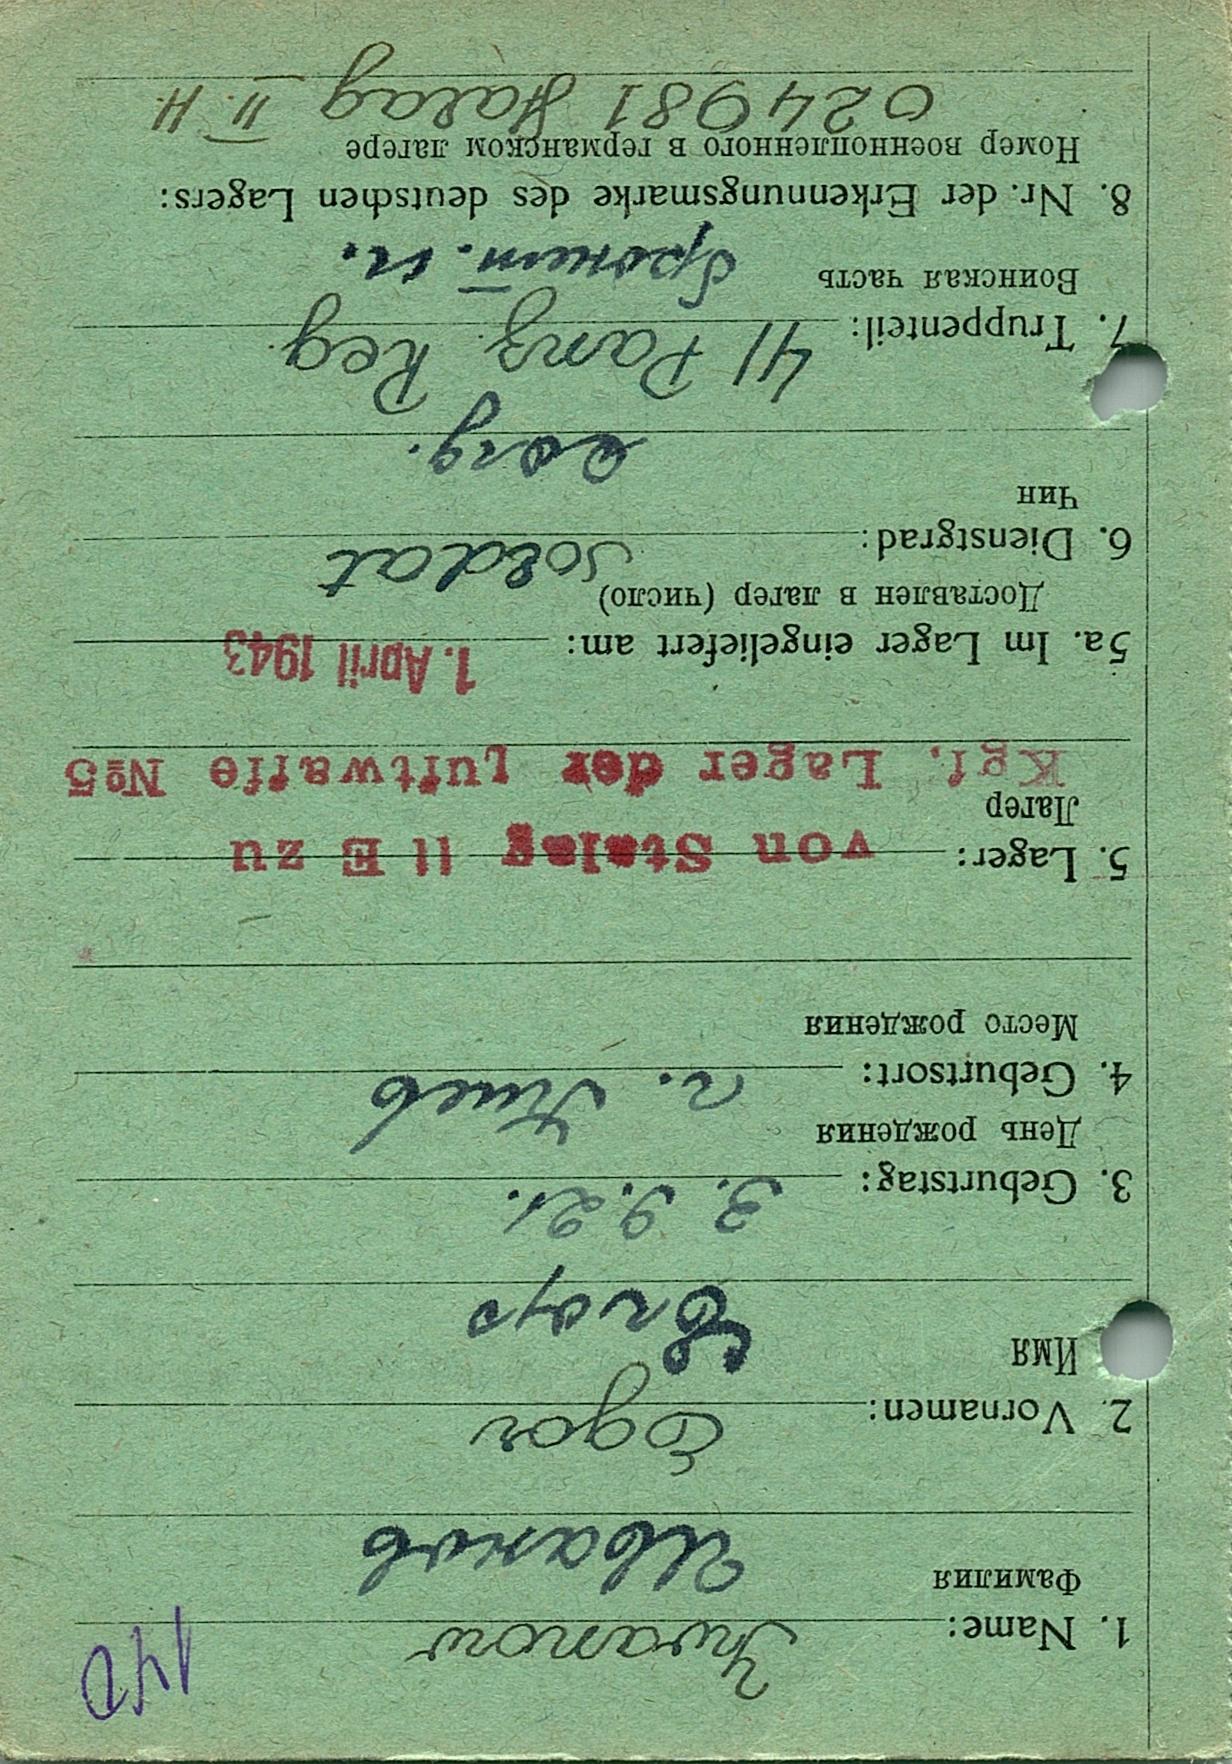 1. Name: Iwanow
Фамилия
Иванов
2. Vornamen: Egor
Имя
Егор
3. Geburtstag: 3.9.21.
День рождения
4. Geburtsort: г. Киев
Место рождения
5. Lager: von Stalag II E zu
Лагер
Kgf. Lager der Luftwaffe №5
5a. Im Lager eingeliefert am: 1. April 1943
Доставлен в лагер (число)
6. Dienstgrad: Soldat
Чин
7. Truppenteil: 41 Panz. Reg.
Воинская часть
8. Nr. der Erkennungsmarke des deutschen Lagers:
Номер военнопленного в германском лагере
024981 II. H.